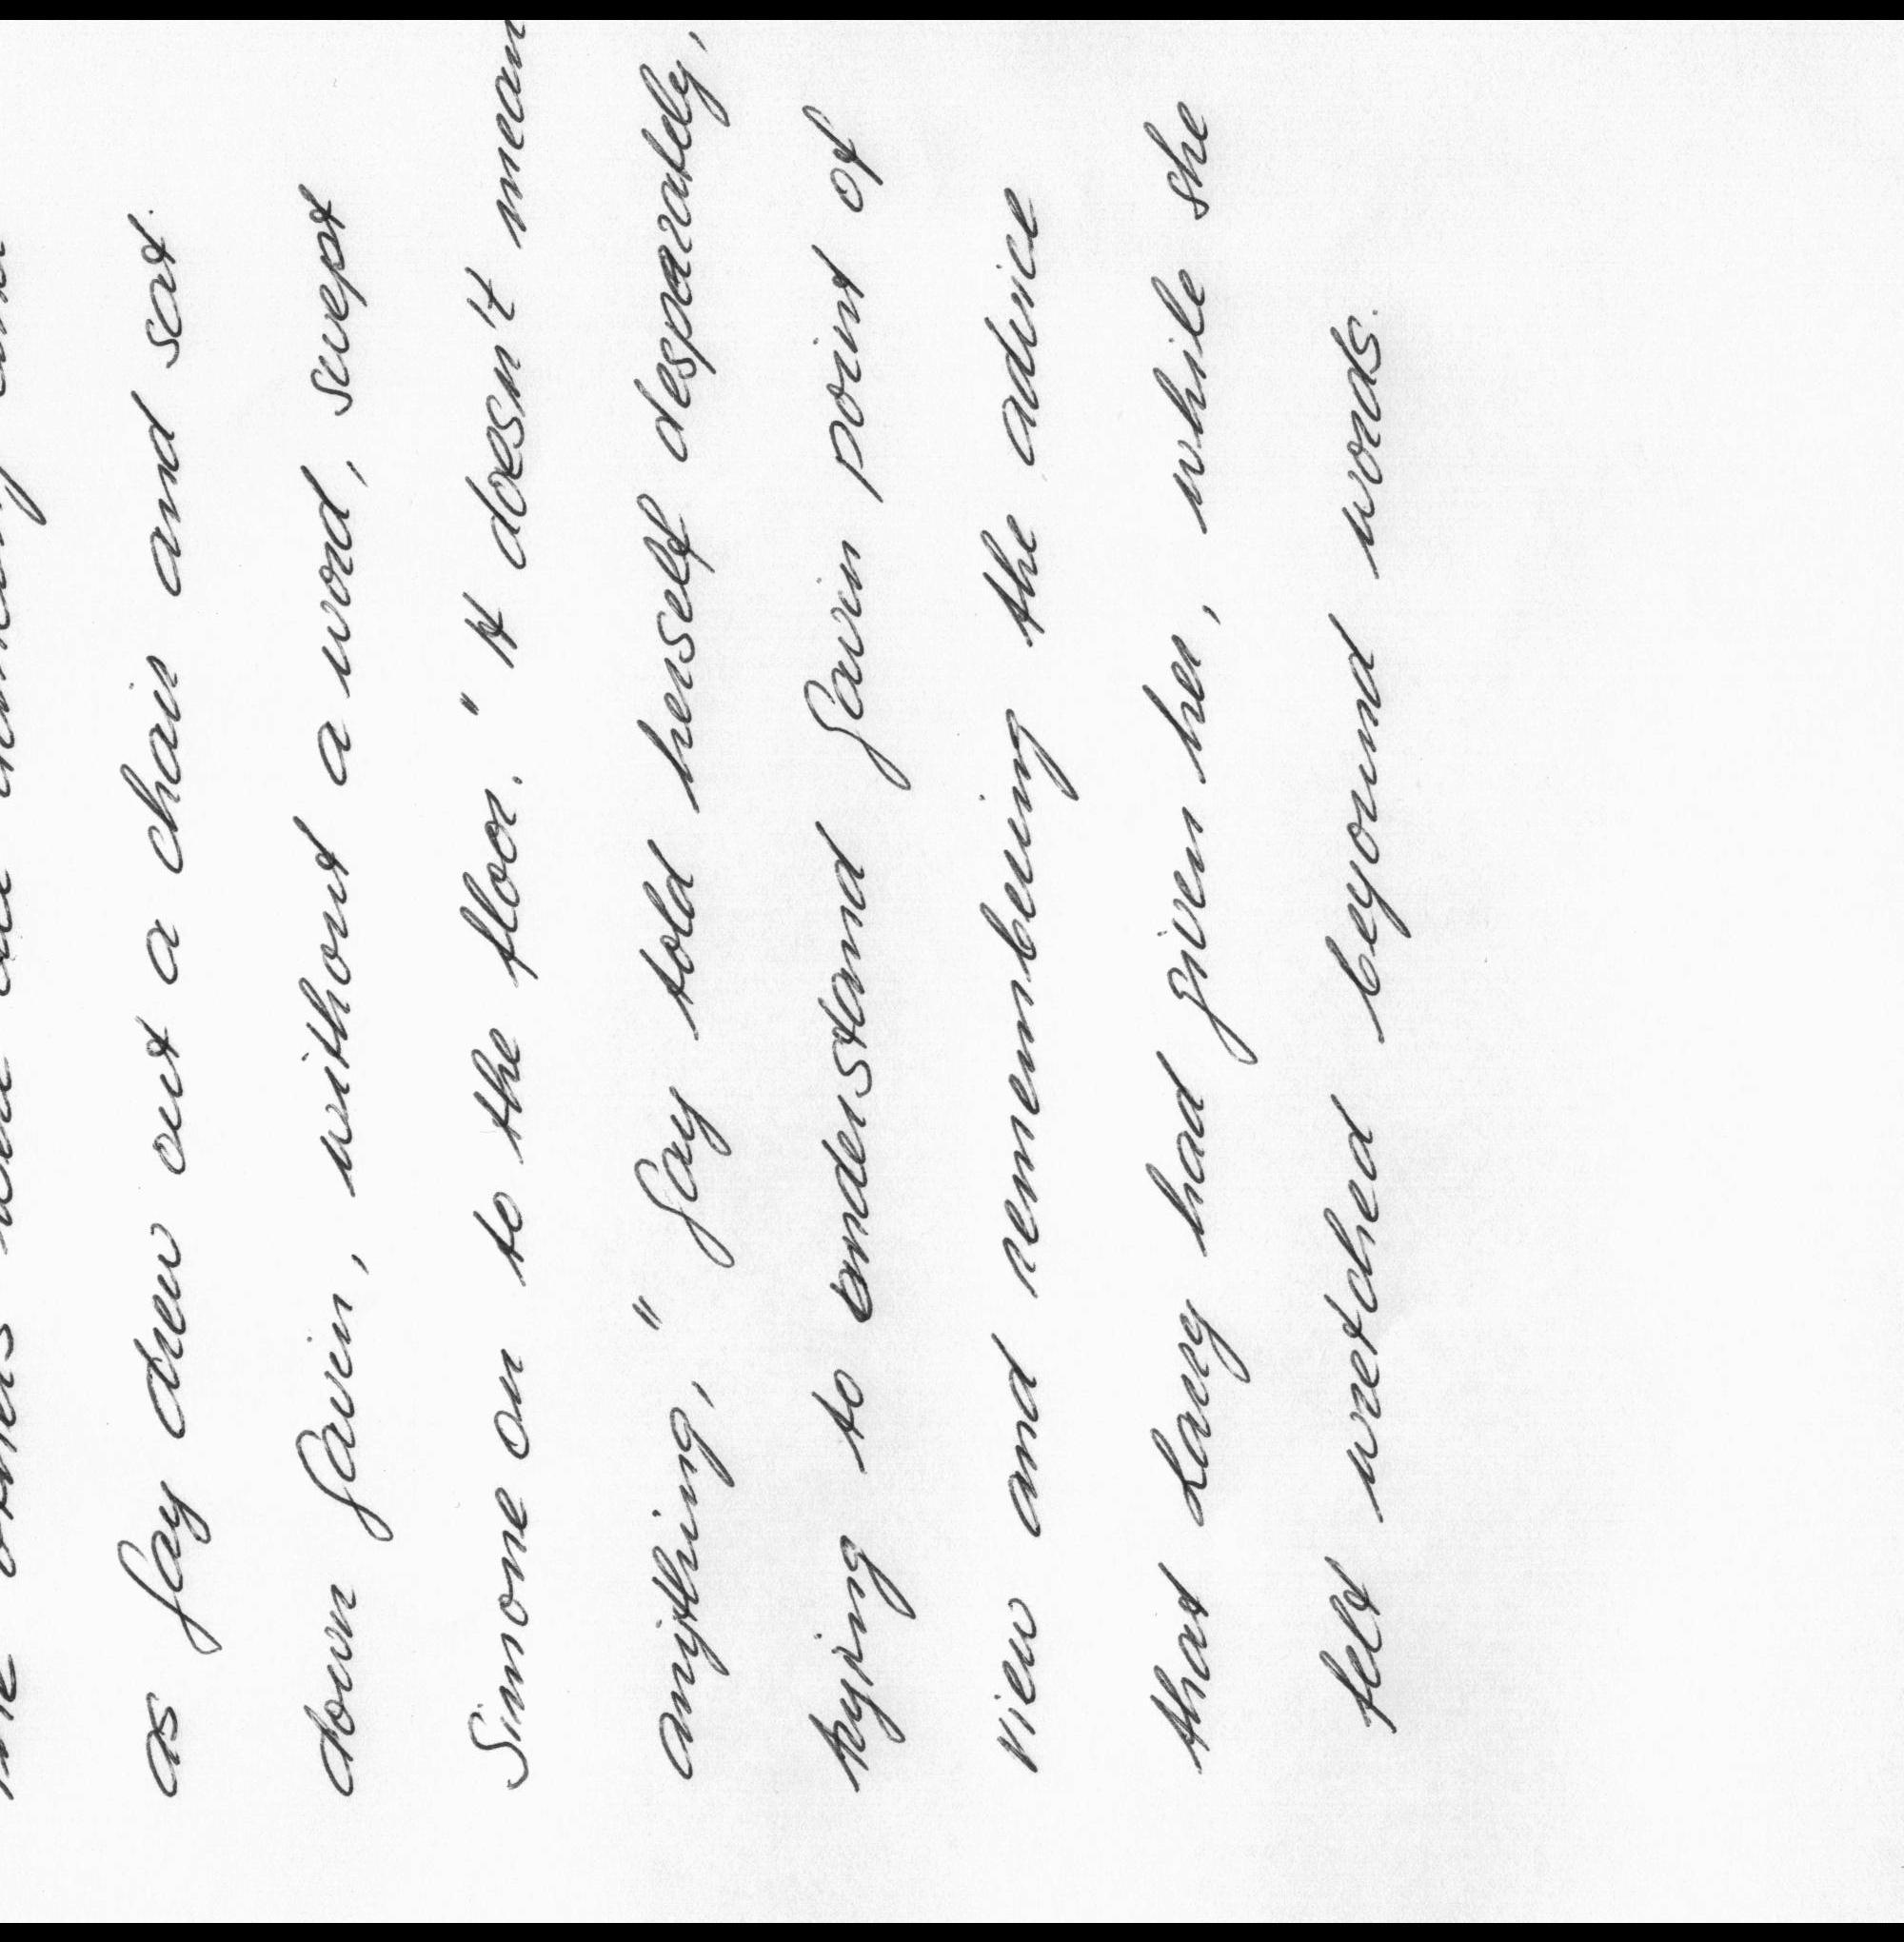 as Gay drew out a chair and sat.
down Gavin, without a word, swept
Simone on to the floor. "It doesn't mean
anything," Gay told herself desparately,
trying to understand Gavin point of
view and remembering the advice
that Lang had given her, while she
felt wretched beyound words.